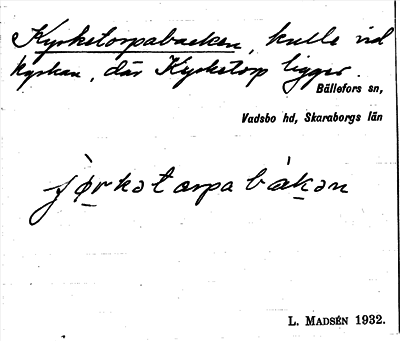 Kyrketorpabacken, kulle vid
kyrkan, där Kyrketorp ligger.
Bällefors sn,
Vadsbo hd, Skaraborgs län
L. MADSÉN 1932.